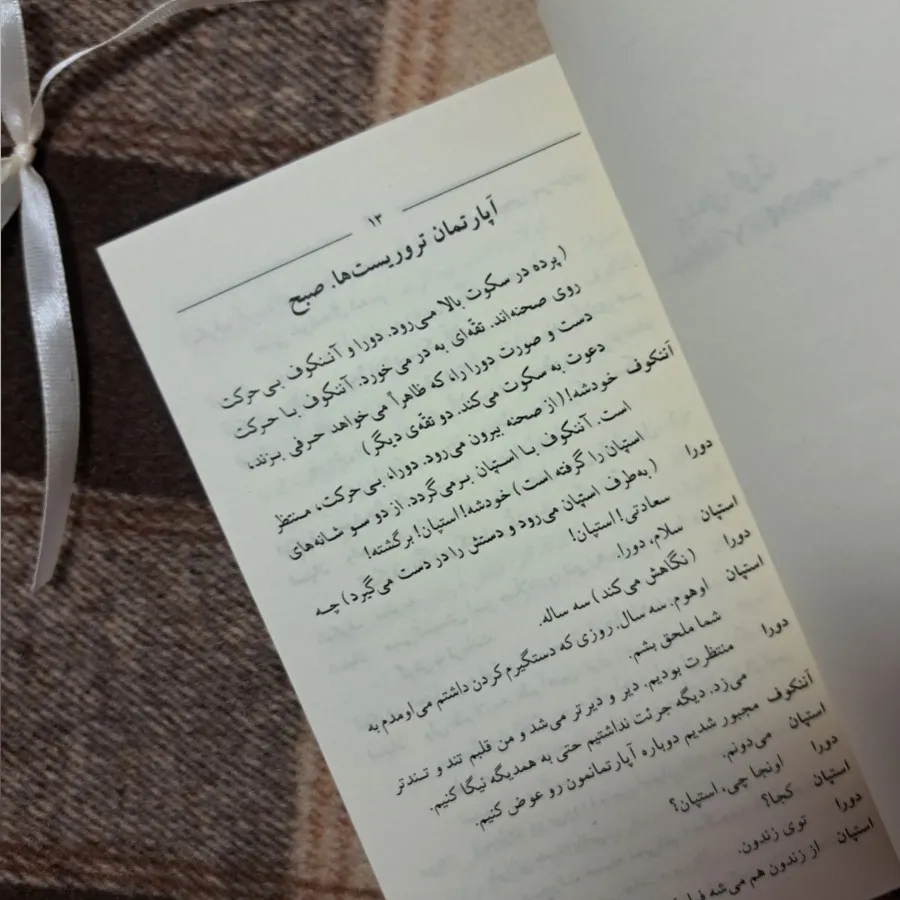 ۱۳
آپارتمان تروریست‌ها. صبح
(پرده در سکوت بالا می‌رود. دورا و آننکوف بی‌حرکت
روی صحنه‌اند. تقّه‌ای به در می‌خورد. آننکوف با حرکت
دست و صورت دورا را، که ظاهراً می‌خواهد حرفی بزند،
دعوت به سکوت می‌کند. دو تقّه‌ی دیگر)
آننکوف خودشه! (از صحنه بیرون می‌رود. دورا، بی‌حرکت، منتظر
است. آننکوف با استپان برمی‌گردد. از دو سو شانه‌های
استپان را گرفته است) خودشه! استپان! برگشته!
دورا (به‌طرف استپان می‌رود و دستش را در دست می‌گیرد) چه
سعادتی! استپان!
استپان سلام، دورا.
دورا (نگاهش می‌کند) سه ساله.
استپان اوهوم. سه سال. روزی که دستگیرم کردن داشتم می‌اومدم به
شما ملحق بشم.
دورا منتظرت بودیم. دیر و دیرتر می‌شد و من قلبم تند و تندتر
می‌زد. دیگه جرئت نداشتیم حتی به همدیگه نیگا کنیم.
آننکوف مجبور شدیم دوباره آپارتمانمون رو عوض کنیم.
استپان می‌دونم.
دورا اونجا چی، استپان؟
استپان کجا؟
دورا توی زندون.
استپان از زندون هم می‌شه